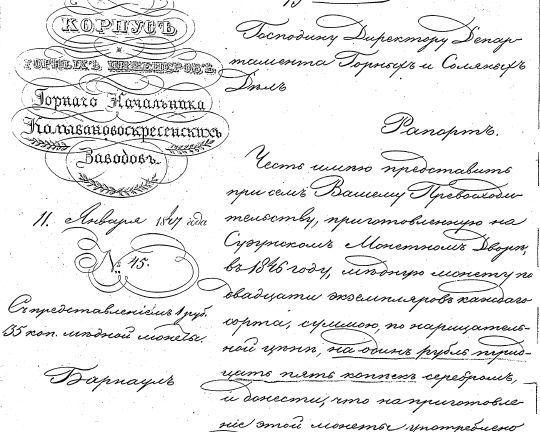 КОРПУСЪ
ГОРНЫХЪ ИНЖЕНЕРОВЪ
Горнаго Начальника
Колывановоскресенскихъ
Заводовъ.
11. Января 1847 года
№ 45.
Съ представленіемъ 1 руб.
35 коп. мѣдной монеты.
Барнаулъ
Господину Директору Депар-
тамента Горныхъ и Соляныхъ
Дѣлъ
Рапортъ.
Честь имѣю представить
при семъ Вашему Превосходи-
тельству, приготовленную на
Сузунскомъ Монетномъ Дворѣ,
въ 1846 году, мѣдную монету по
двадцати экземпляровъ каждаго
сорта, суммою, по нарицатель-
ной цѣнѣ, на одинъ рубль трид-
цать пять копѣекъ серебромъ,
и донести, что на приготовле-
ніе этой монеты употреблено